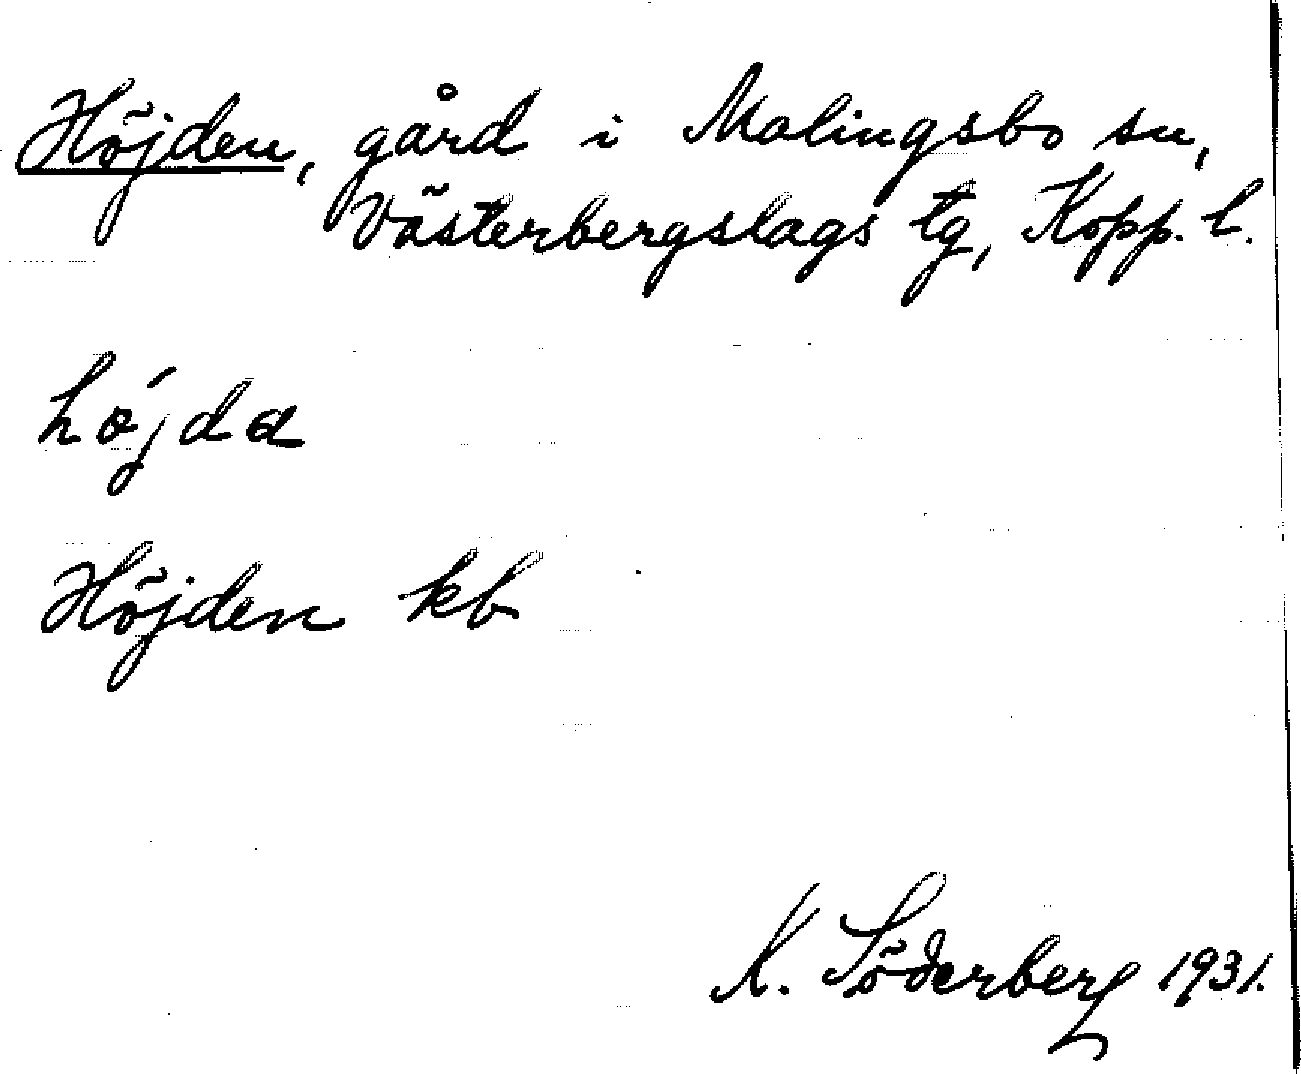 Höjden, gård i Malingsbo sn,
Västerbergslags tg, Kopp. l.
hǿjda
Höjden kb
K. Söderberg 1931.